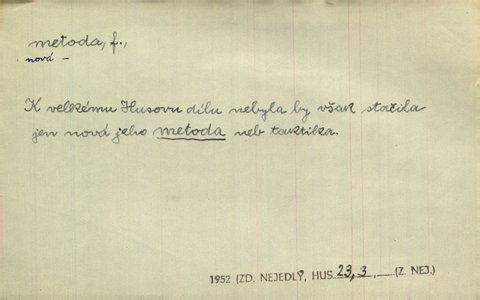 metoda, f.,
nová –
K velkému Husovu dílu nebyla by však stačila
jen nová jeho metoda neb taktika.
1952 (ZD. NEJEDLÝ, HUS 23, 3, — (Z. NEJ.)